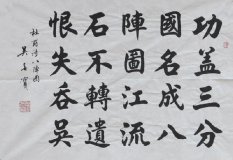 功盖三分
國名成八
陣圖江流
石不轉遺
恨失吞吳
杜甫詩八陣圖